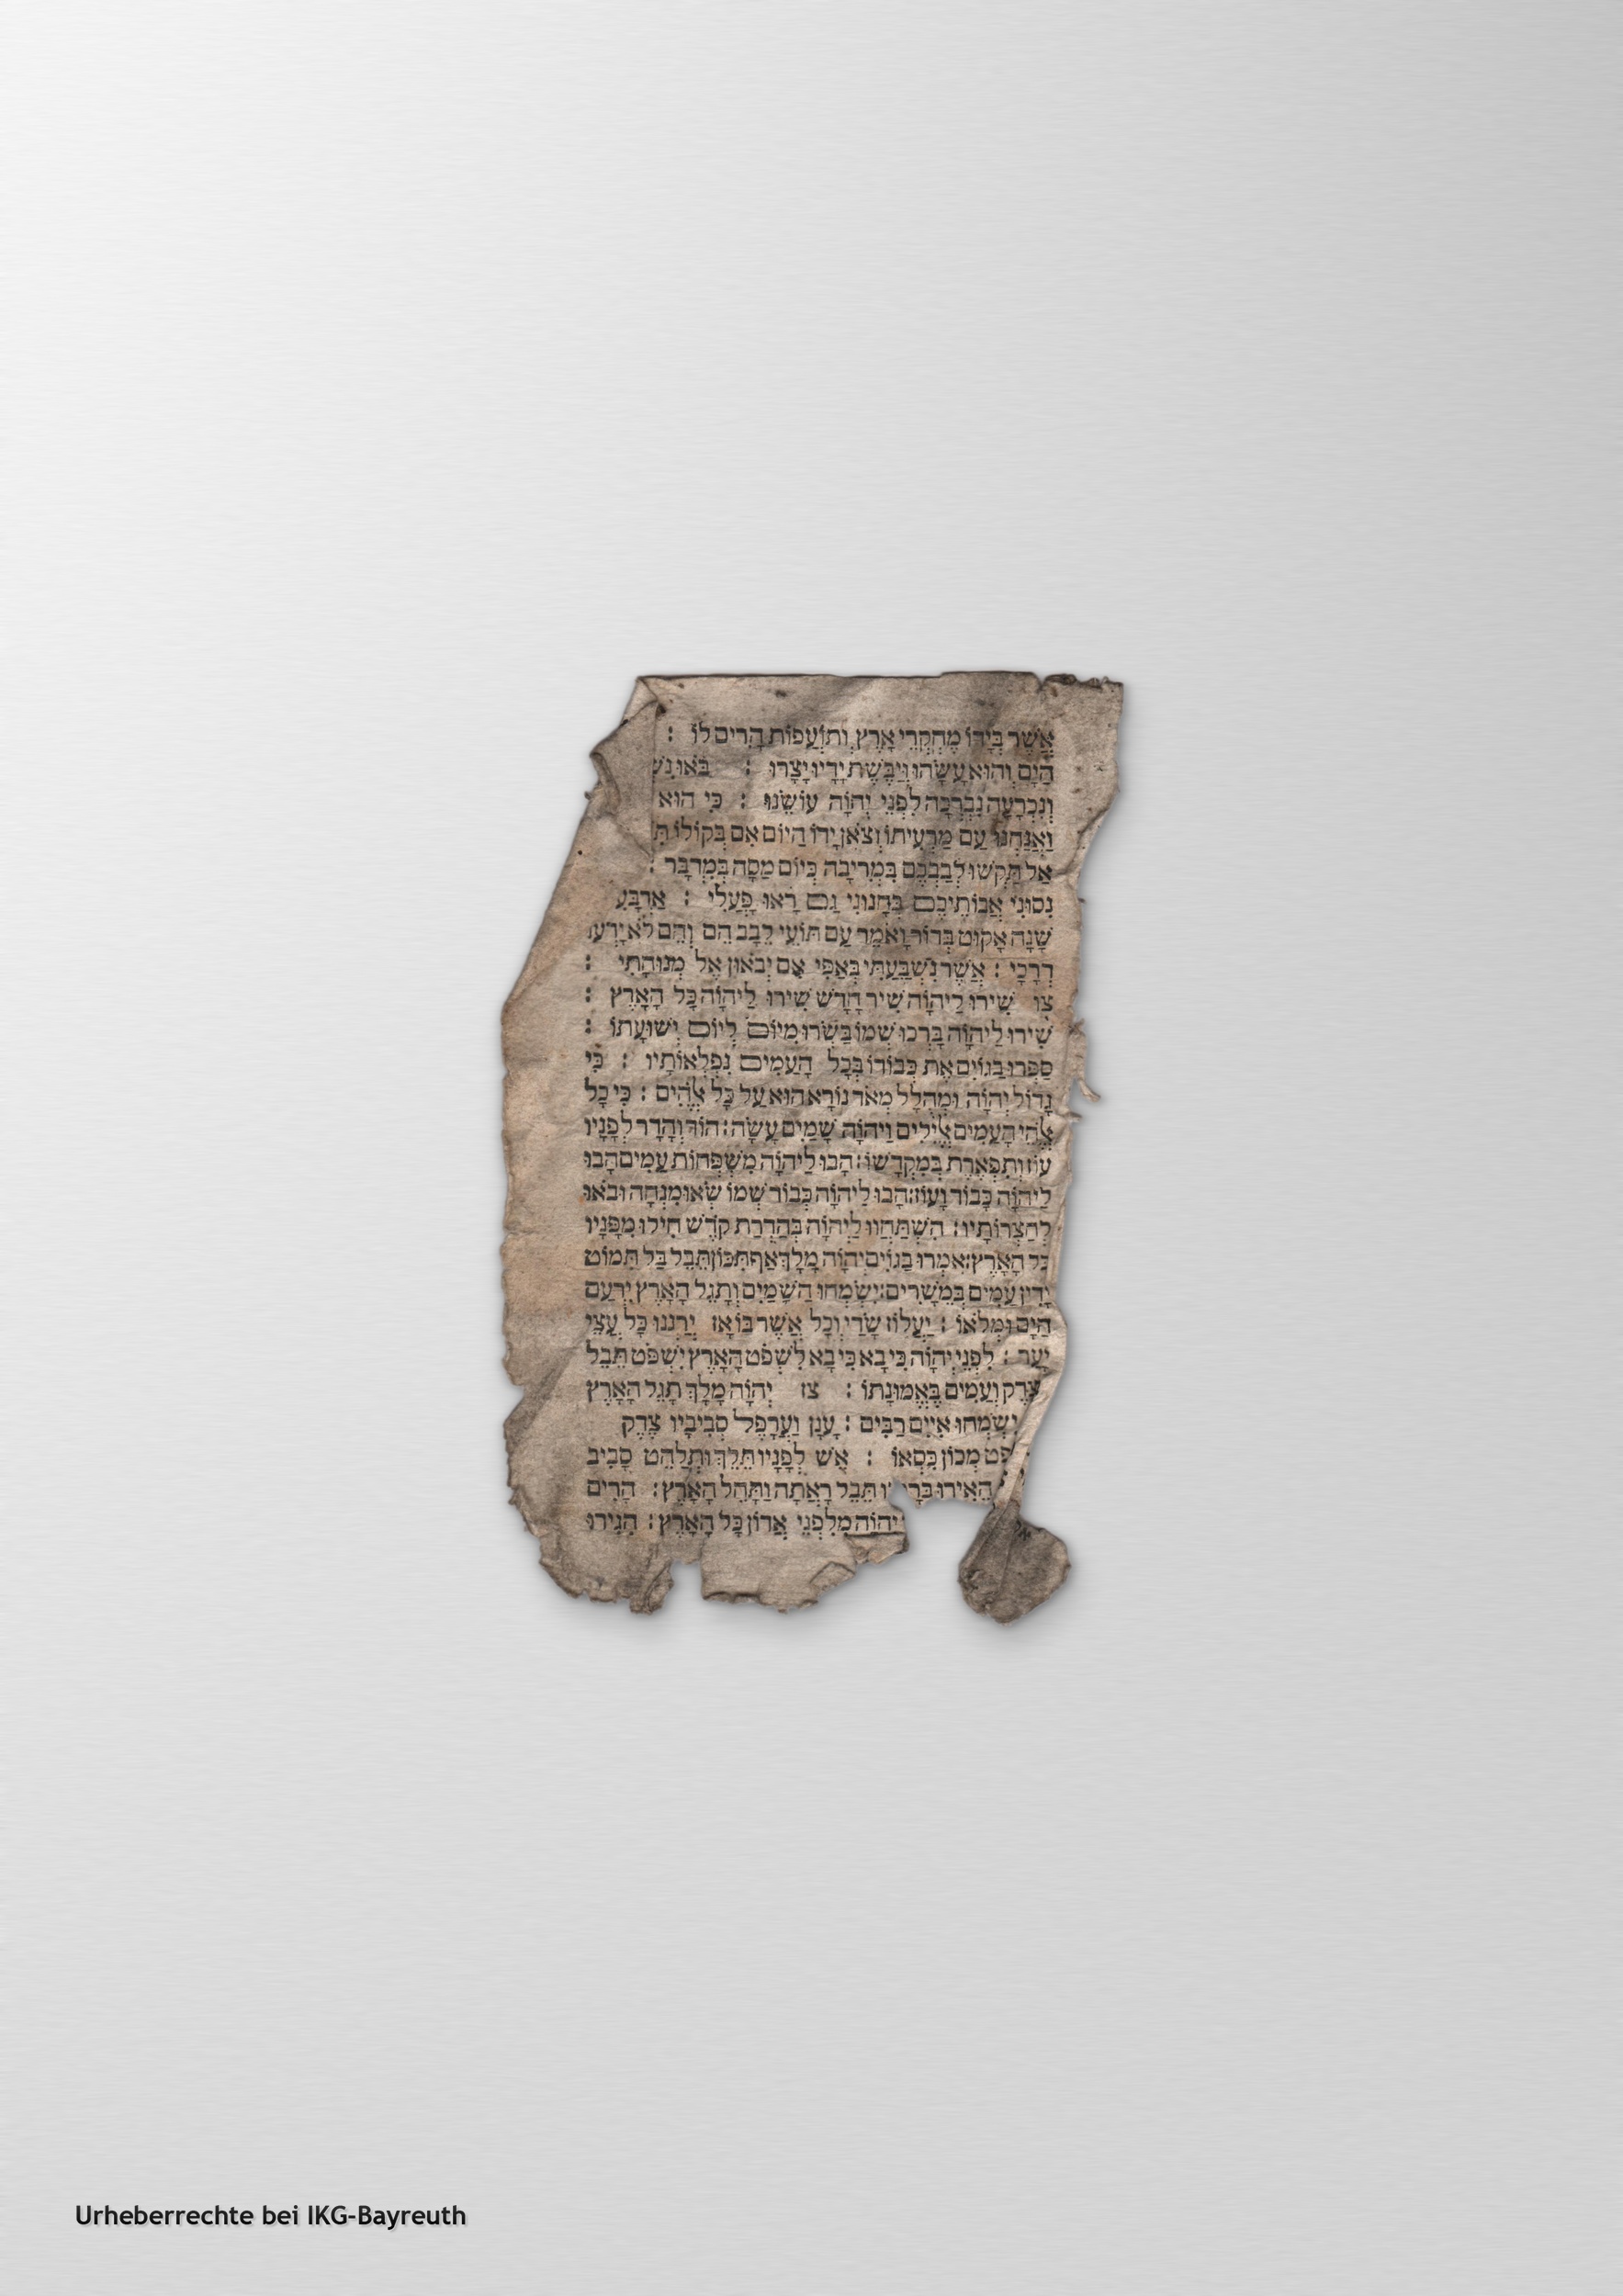 אֲשֶׁר בְּיָדוֹ מֶחְקְרֵי אָרֶץ וְתוֹעֲפוֹת הָרִים לוֹ :
הַיָּם וְהוּא עָשָׂהוּ וְיַבֶּשֶׁת יָדָיו יָצָרוּ : בֹּאוּ
וְנִכְרָעָה נִבְרְכָה לִפְנֵי יְהוָֹה עוֹשֵׂנוּ : כִּי הוּא
וַאֲנַחְנוּ עַם מַרְעִיתוֹ וְצֹאן יָדוֹ הַיּוֹם אִם בְּקוֹלוֹ
אַל תַּקְשׁוּ לְבַבְכֶם בִּמְרִיבָה כְּיוֹם מַסָּה בַּמִּדְבָּר :
נִסּוּנִי אֲבוֹתֵיכֶם בְּחָנוּנִי גַם רָאוּ פָעֳלִי : אַרְבָּעִ
שָׁנָה אָקוּט בְּדוֹר וָאֹמַר עַם תּוֹעֵי לֵבָב הֵם וְהֵם לֹא יָדְעוּ
דְרָכָי : אֲשֶׁר נִשְׁבַּעְתִּי בְאַפִּי אִם יְבֹאוּן אֶל מְנוּחָתִי :
צו שִׁירוּ לַיהוָֹה שִׁיר חָדָשׁ שִׁירוּ לַיהוָֹה כָּל הָאָרֶץ :
שִׁירוּ לַיהוָֹה בָּרְכוּ שְׁמוֹ בַּשְּׂרוּ מִיּוֹם לְיוֹם יְשׁוּעָתוֹ :
סַפְּרוּ בַגּוֹיִם אֶת כְּבוֹדוֹ בְּכָל הָעַמִּים נִפְלְאוֹתָיו : כִּי
גָדוֹל יְהוָֹה וּמְהֻלָּל מְאֹד נוֹרָא הוּא עַל כָּל אֱלֹהִים : כִּי כָּל
אֱלֹהֵי הָעַמִּים אֱלִילִים וַיהוָֹה שָׁמַיִם עָשָׂה : הוֹד וְהָדָר לְפָנָיו
עוֹז וְתִפְאֶרֶת בְּמִקְדָּשׁוֹ : הָבוּ לַיהוָֹה מִשְׁפְּחוֹת עַמִּים הָבוּ
לַיהוָֹה כָּבוֹד וָעוֹז : הָבוּ לַיהוָֹה כְּבוֹד שְׁמוֹ שְׂאוּ מִנְחָה וּבֹאוּ
לְחַצְרוֹתָיו : הִשְׁתַּחֲווּ לַיהוָֹה בְּהַדְרַת קֹדֶשׁ חִילוּ מִפָּנָיו
כָּל הָאָרֶץ : אִמְרוּ בַגּוֹיִם יְהוָֹה מָלָךְ אַף תִּכּוֹן תֵּבֵל בַּל תִּמּוֹט
יָדִין עַמִּים בְּמֵשָׁרִים : יִשְׂמְחוּ הַשָּׁמַיִם וְתָגֵל הָאָרֶץ יִרְעַם
הַיָּם וּמְלֹאוֹ : יַעֲלוֹז שָׂדַי וְכָל אֲשֶׁר בּוֹ אָז יְרַנְּנוּ כָּל עֲצֵי
יָעַר : לִפְנֵי יְהוָֹה כִּי בָא כִּי בָא לִשְׁפֹּט הָאָרֶץ יִשְׁפֹּט תֵּבֵל
צֶדֶק וְעַמִּים בֶּאֱמוּנָתוֹ : צז יְהוָֹה מָלָךְ תָּגֵל הָאָרֶץ
יִשְׂמְחוּ אִיִּים רַבִּים : עָנָן וַעֲרָפֶל סְבִיבָיו צֶדֶק
פָּט מְכוֹן כִּסְאוֹ : אֵשׁ לְפָנָיו תֵּלֵךְ וּתְלַהֵט סָבִיב
הֵאִירוּ תֵּבֵל רָאֲתָה וַתָּחֵל הָאָרֶץ : הָרִים
יְהוָֹה מִלִּפְנֵי אֲדוֹן כָּל הָאָרֶץ : הִגִּידוּ
Urheberrechte bei IKG-Bayreuth